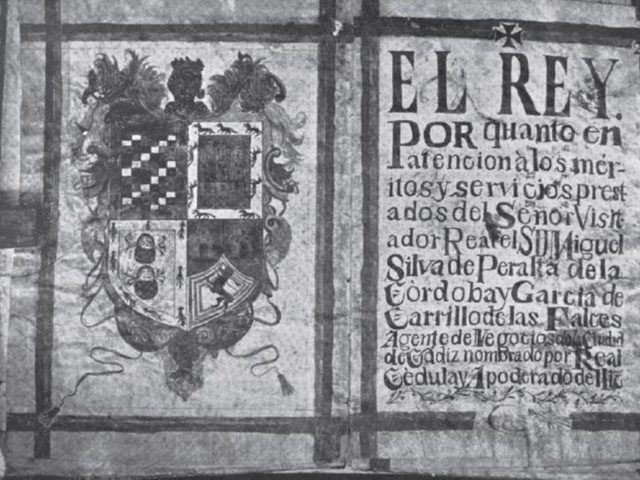 EL REY.
POR quanto en
atencion a los mér-
itos y servicios prest
ados del Señor Visit
ador Real el S.D. Miguel
Silva de Peralta de la
Còrdoba y Garcia de
Carrillo de las Falces
Agente de Negocios de la Ciudad
de Cadiz nombrado por Real
Cedula y Apoderado del